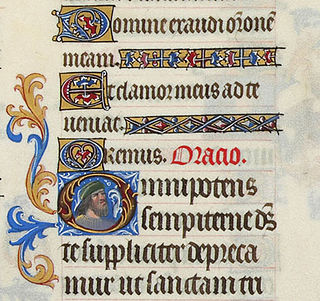 Domine exaudi oronē
meam.
Et clamor meus ad te
ueniat.
Oremus. Oracio.
Omnipotens
sempiterne ds̄
te suppliciter depreca
mur ut sanctam tu